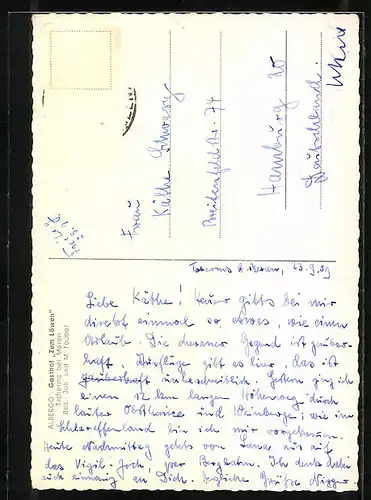 Frau
Käthe
Breitenfelderstr. 74
Hamburg 20
Deutschland.
ALBERGO Gasthof „Zum Löwen"
Tscherms bei Meran
Bes. Joh. und M. Tauber
Tscherms b. Meran, 23.9.59
Liebe Käthe! Heuer gibts bei mir
direkt einmal so etwas, wie einen
Urlaub. Die Meraner Gegend ist zauber-
haft. Ausflüge gibt es hier, das ist
zauberhaft unbeschreiblich. Gestern ging ich
einen 12 km langen Höhenweg durch
lauter Obsthaine und Weinberge, wie im
Schlaraffenland bin ich mir vorgekommen.
Heute Nachmittag gehts von Lana aus auf
das Vigil-Joch, per Bergbahn. Ich denke dabei
auch einmal an Dich. Herzliche Grüße